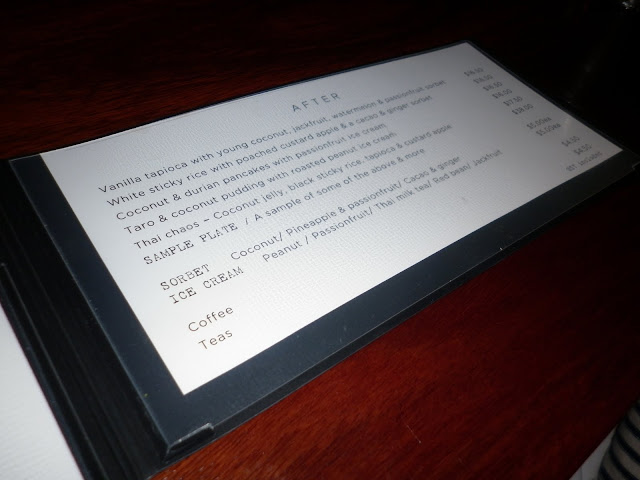 AFTER
Vanilla tapioca with young coconut, jackfruit, watermelon & passionfruit sorbet
White sticky rice with poached custard apple & a cacao & ginger sorbet
Coconut & durian pancakes with passionfruit ice cream
Taro & coconut pudding with roasted peanut ice cream
Thai chaos - Coconut jelly, black sticky rice, tapioca & custard apple
SAMPLE PLATE / A sample of some of the above & more
SORBET Coconut/ Pineapple & passionfruit/ Cacao & ginger
ICE CREAM Peanut / Passionfruit/ Thai milk tea/ Red bean/ Jackfruit
Coffee
Teas